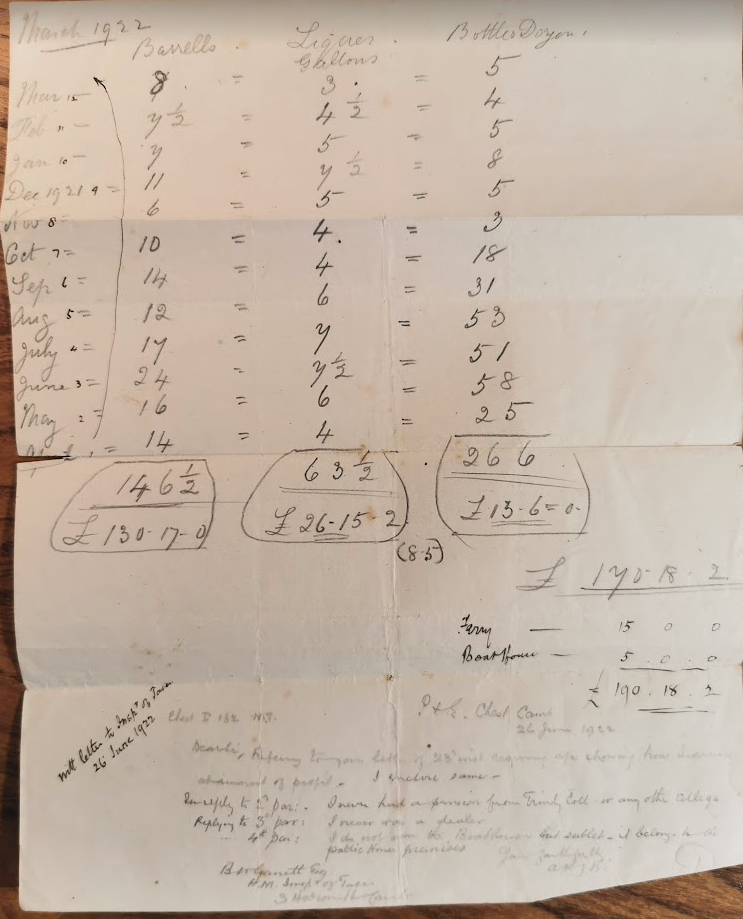 March 1922
Barrells . Liqures . Bottles Dozen.
Gallons
Mar 12 8 . = 3 . = 5
Feb 11 – 7 1/2 = 4 1/2 = 4
Jan 10 – 7 = 5 = 5
Dec 1921 9 = 11 = 7 1/2 = 8
Nov 8 = 6 = 5 = 5
Oct 7 = 10 = 4. = 3
Sep 6 = 14 = 4 = 18
Aug 5 = 12 = 6 = 31
July 4 = 17 = 7 = 53
June 3 = 24 = 7 1/2 = 51
May 2 = 16 = 6 = 58
1 = 14 = 4 = 25
146 1/2 63 1/2 266
£ 130-17-0 £ 26-15-2 £ 13-6=0-
(8.5)
£ 170-18.2
Ferry — 15 0 0
Boat House — 5 . 0 . 0
£ 190.18.2
with letter to Insptr of Taxes
26 June 1922
Chest
26 June 1922
Referring to your letter of showing
of profit. I enclose same –
In reply to 2nd par: . I never had a pension from Trinity Coll or any other College
Replying to 3rd par: I never was a dealer
4th par: I do not own the Boathouse but sublet – it belongs to the
public house premises
Yours faithfully
Garrett Esq
H.M. Inspr of Taxes